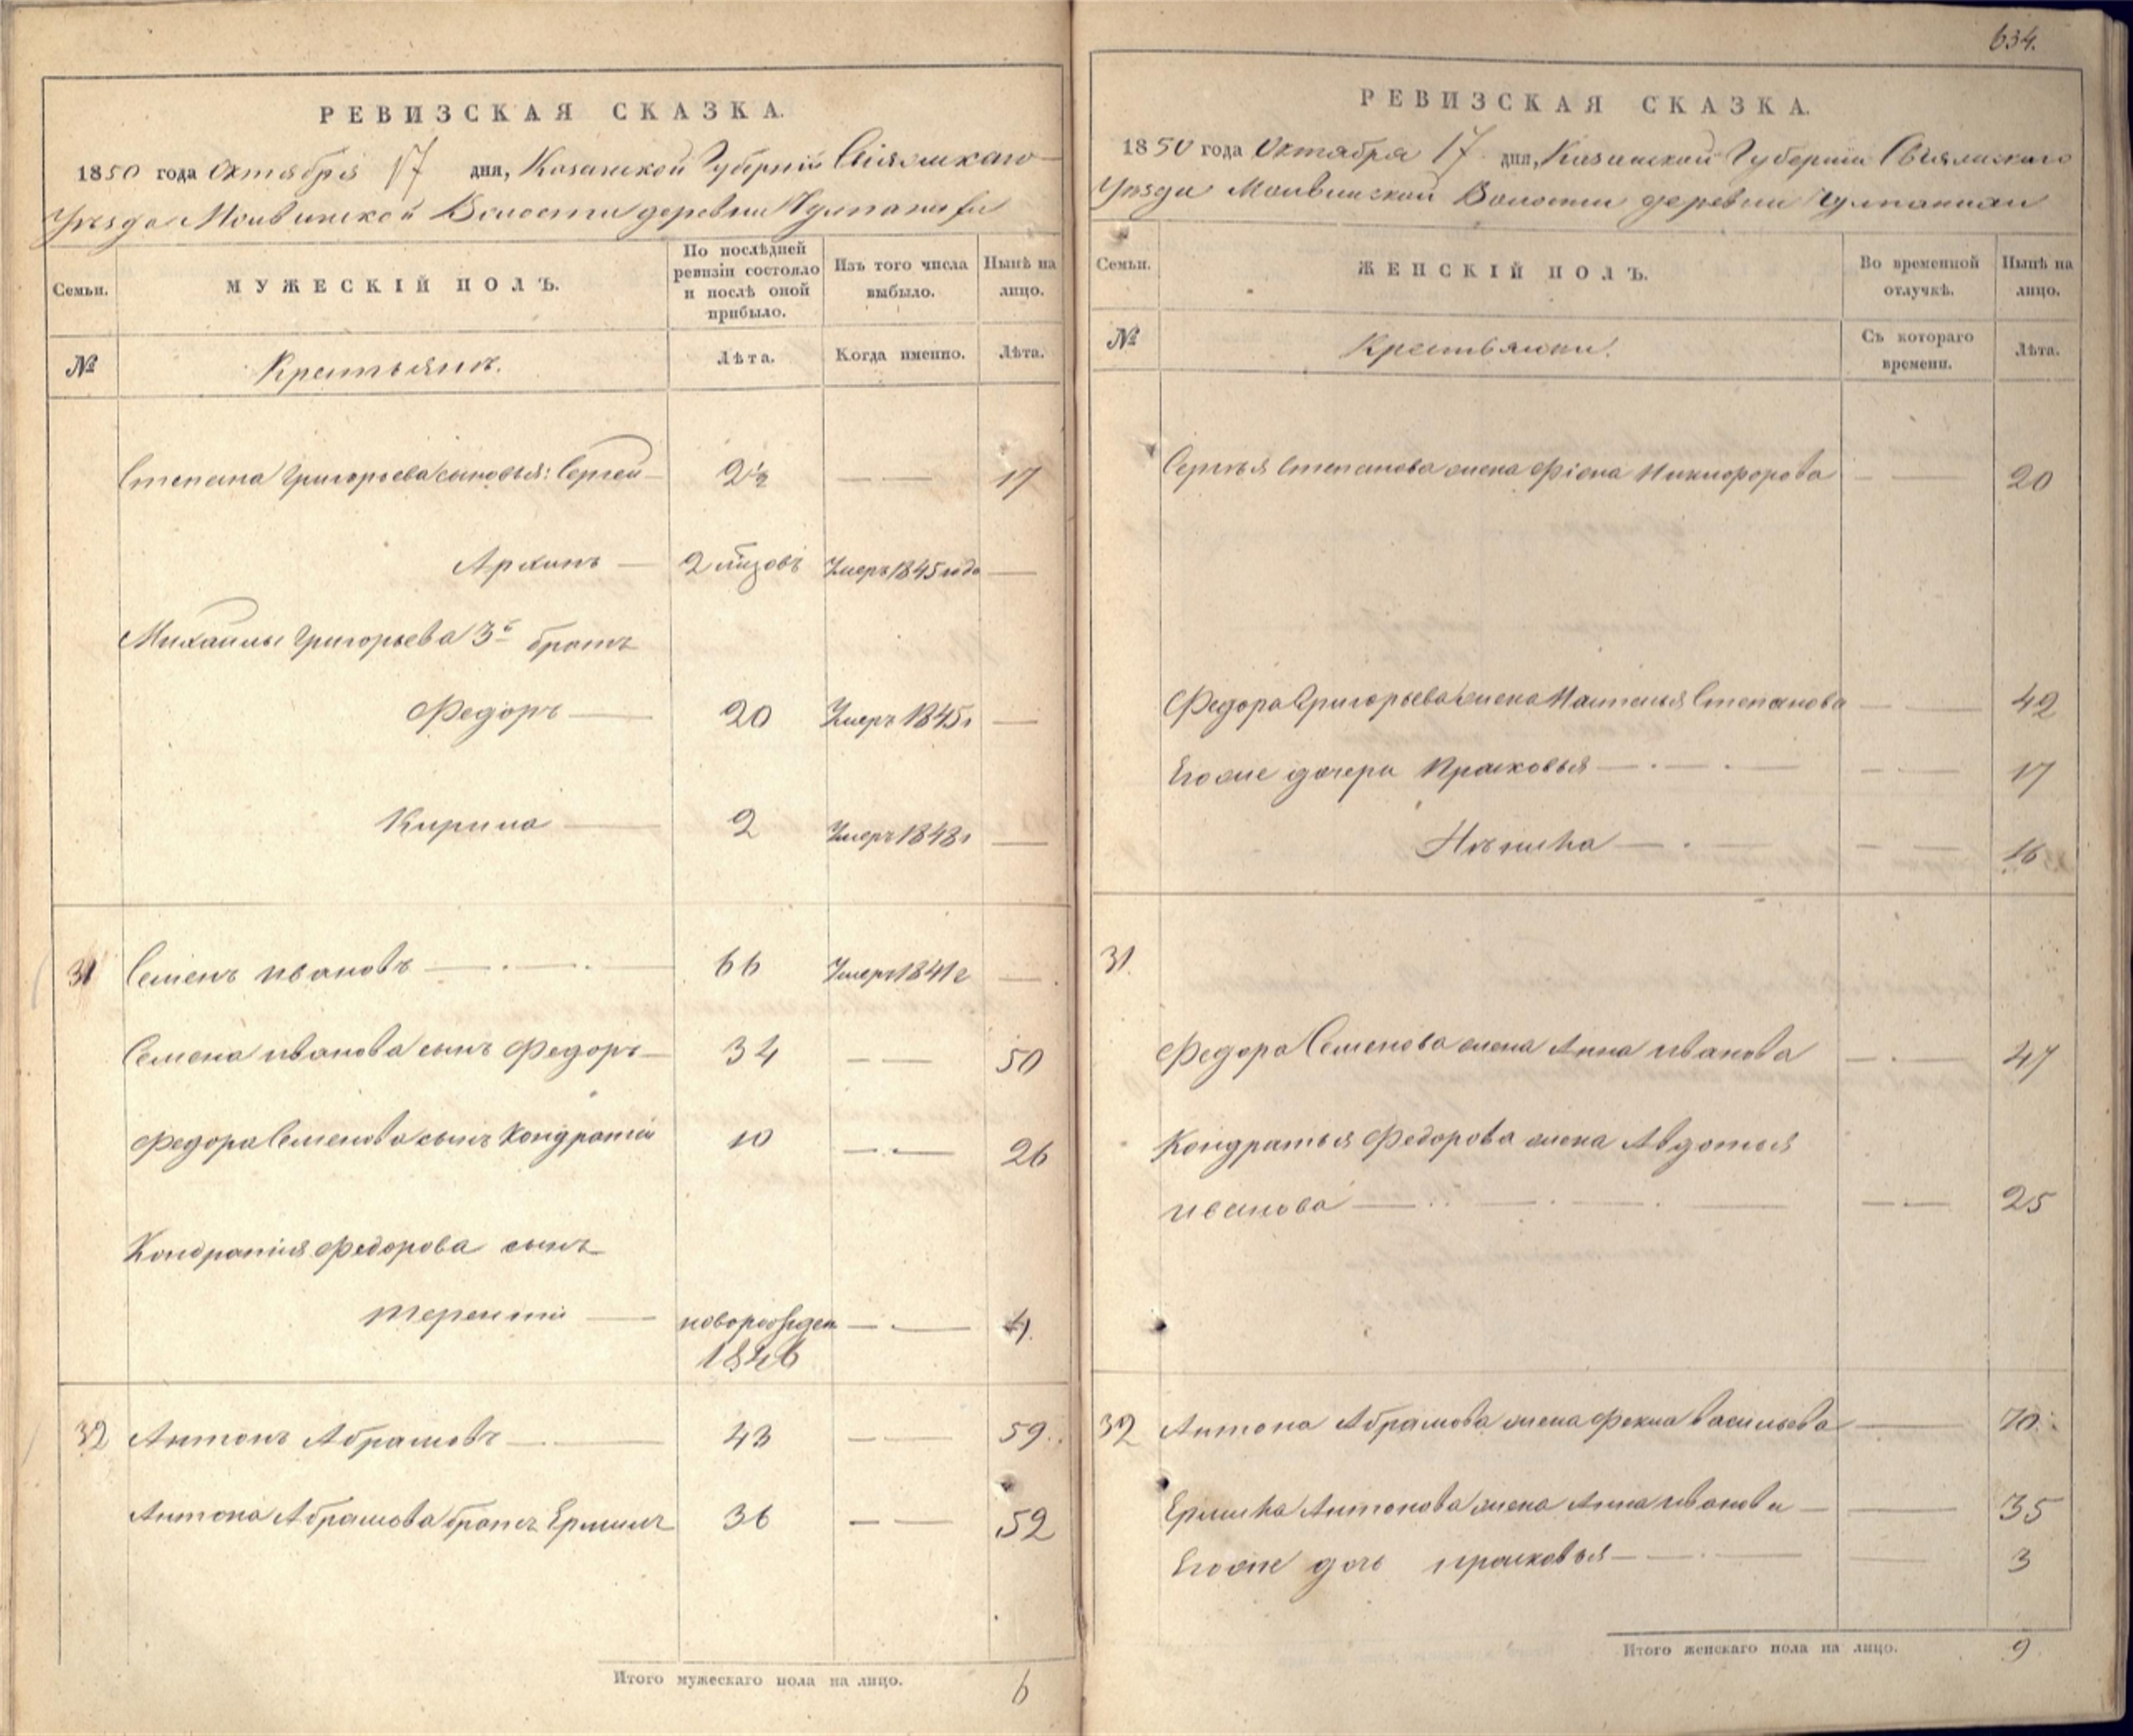 РЕВИЗСКАЯ СКАЗКА.
1850 года Октября 17 дня, Казанской Губерніи Свіяжскаго
Уѣзда Молвинской Волости деревни
Семьи.
МУЖЕСКІЙ ПОЛЪ.
По послѣдней ревизіи состояло и послѣ оной прибыло.
Изъ того числа выбыло.
Нынѣ на лицо.
№
Крестьянъ.
Лѣта.
Когда именно.
Лѣта.
Степана Григорьева сыновья: Сергей — 2½ — — 17
Архипъ — 2 Умеръ 1845 года —
Михаилы Григорьева 3й братъ
Федоръ — 20 Умеръ 1845г —
Кирила — 2 Умеръ 1848г —
31 Семенъ Ивановъ — . — . — 66 Умеръ 1841г —
Семена Иванова сынъ Федоръ — 34 — — 50
Федора Семенова сынъ Кондратій 10 — . — 26
Кондратія Федорова сынъ
Терентій — новорожден — . — 4.
1846
32 Антонъ Абрамовъ — . — 43 — — 59.
Антона Абрамова братъ Ермилъ 36 — — 52
Итого мужескаго пола на лицо. 6
634.
РЕВИЗСКАЯ СКАЗКА.
1850 года Октября 17 дня, Казанской Губерніи Свіяжскаго
Уѣзда Молвинской Волости деревни
Семьи.
ЖЕНСКІЙ ПОЛЪ.
Во временной отлучкѣ.
Нынѣ на лицо.
№
Крестьянки.
Съ котораго времени.
Лѣта.
Сергѣя Степанова жена Фіона Никифорова — — 20
Федора Григорьева жена Наталья Степанова — — 42
Егоже дочери Прасковья — . — . — — — 17
— . — — — 16
31.
Федора Семенова жена Анна Иванова — . — 47
Кондратья Федорова жена Авдотья
Иванова — . . — . — . — — . — 25
32 Антона Абрамова жена Фекла Васильева — 70.
Ермила Антонова жена Анна Иванова — — 35
Егоже дочь Прасковья — — . — — 3
Итого женскаго пола на лицо. 9